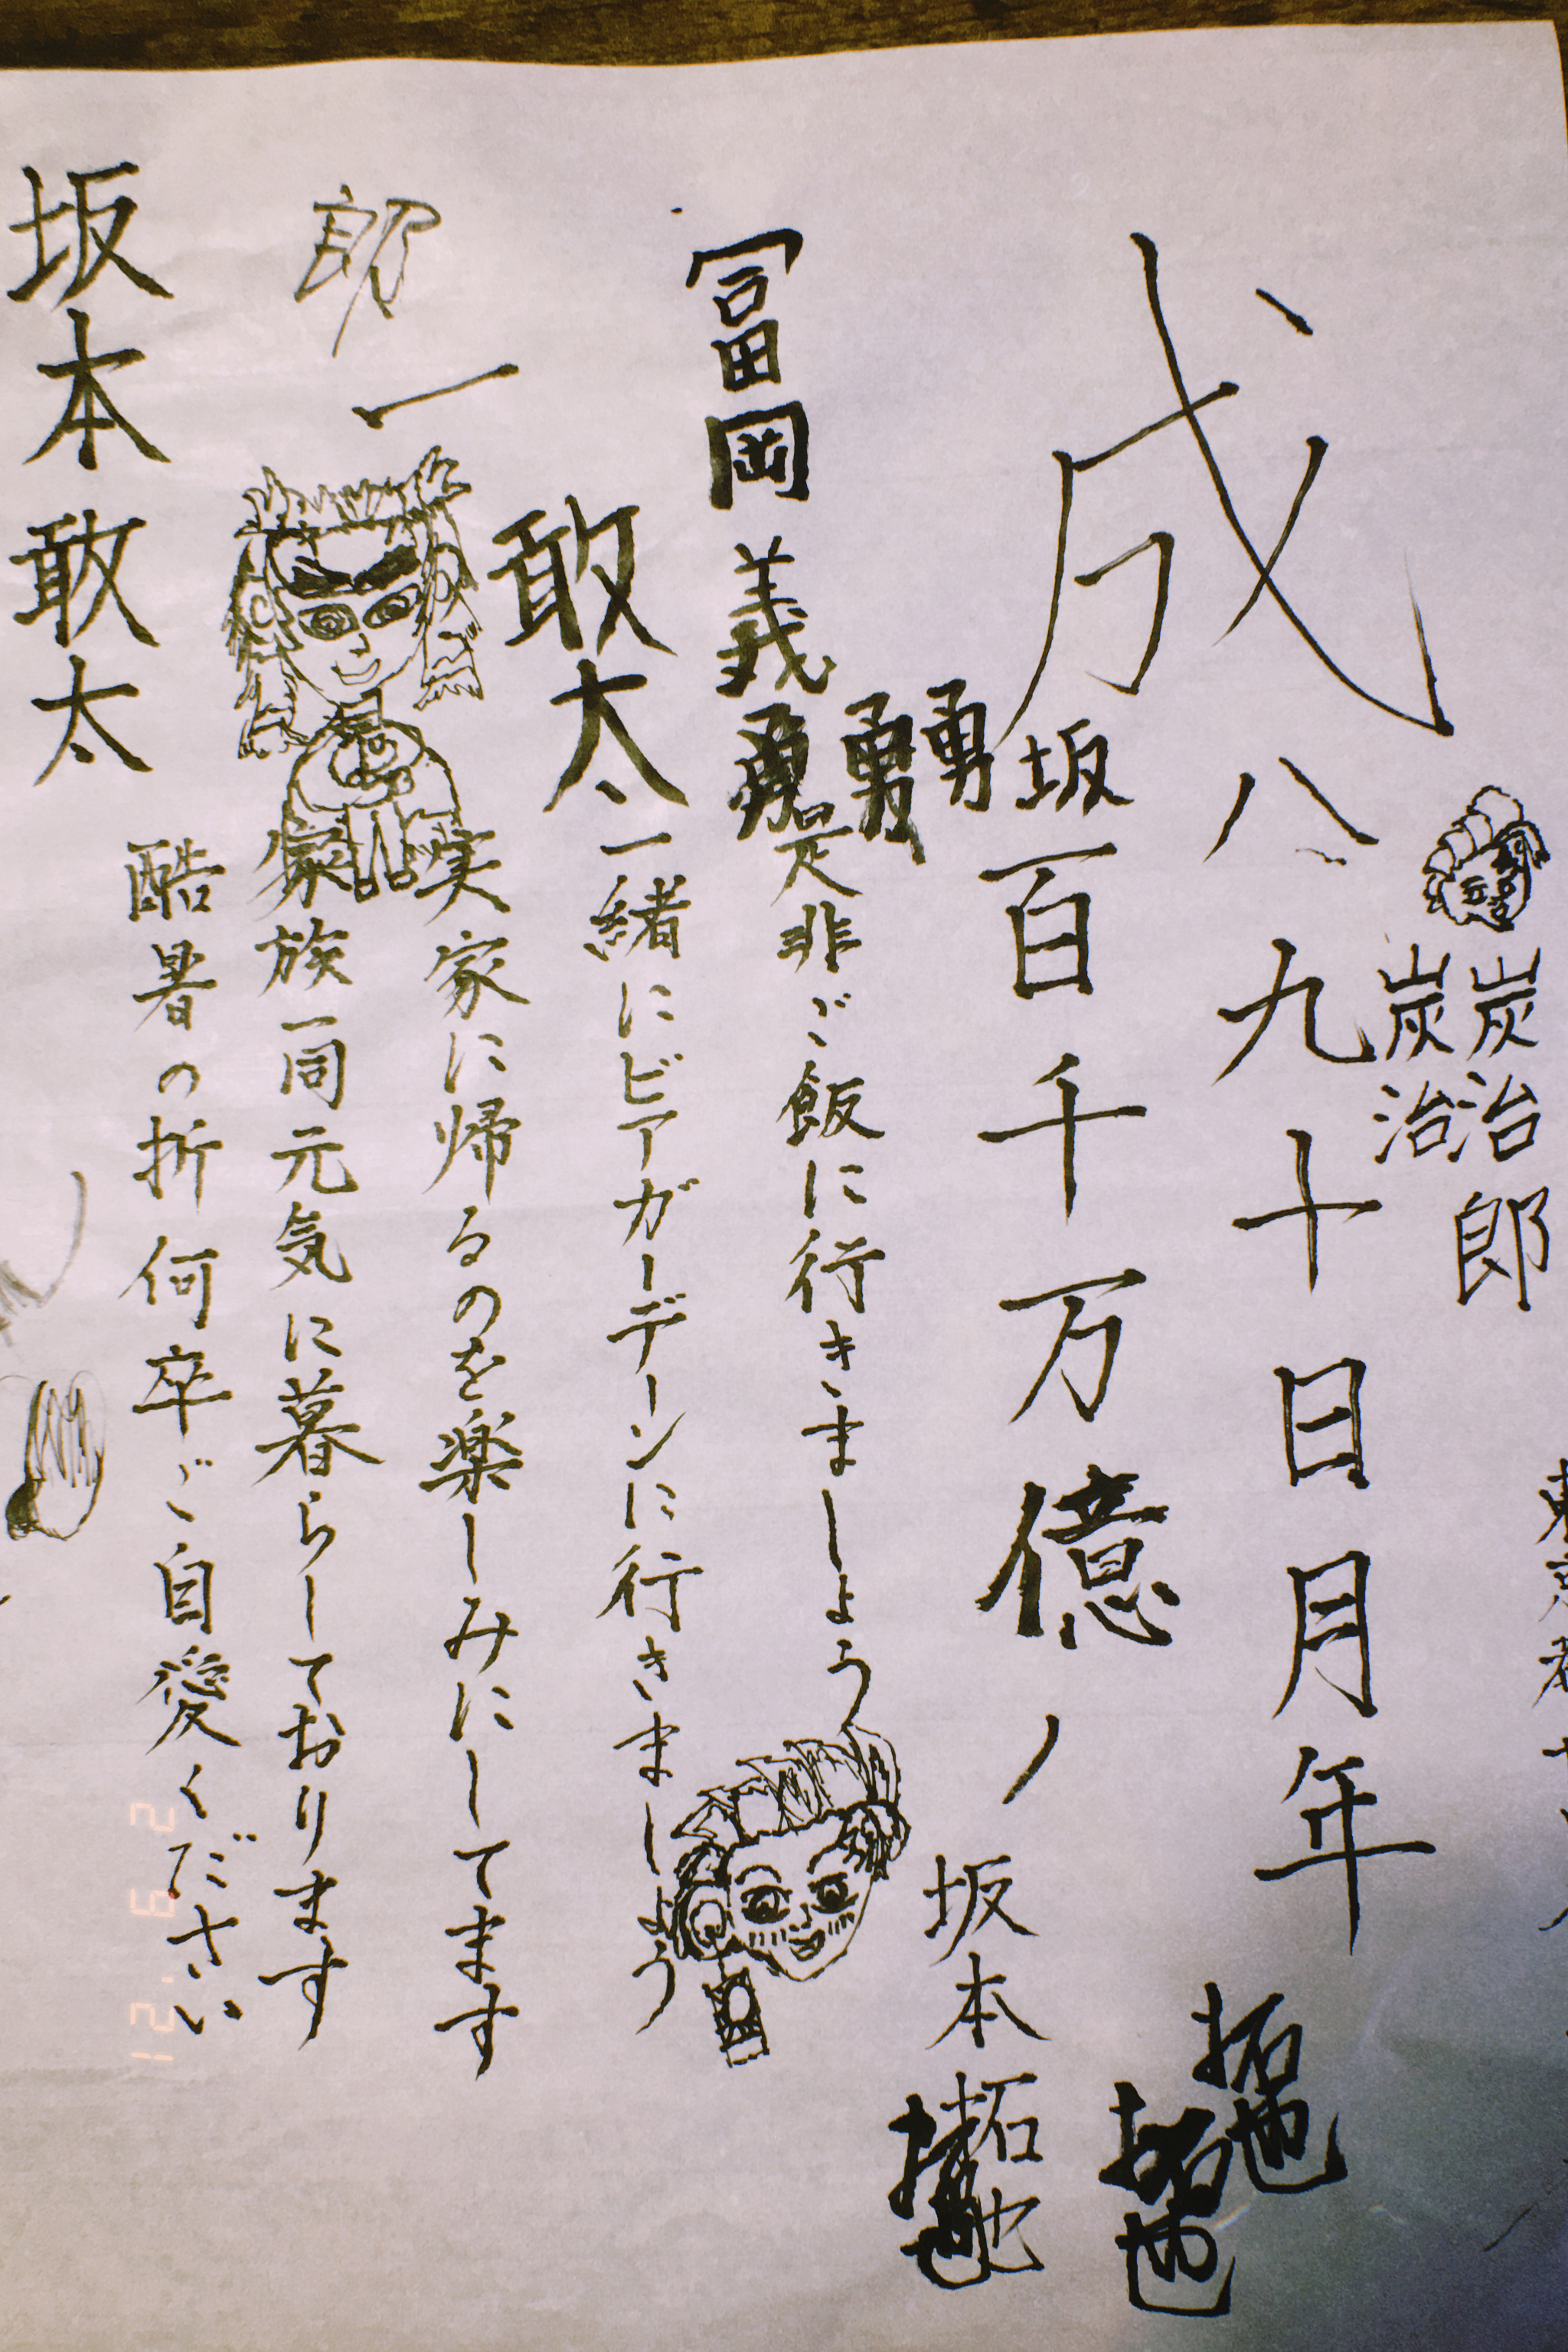 炭治郎
炭治
成
八九十日月年
拓也
拓也
坂
百千万億ノ
坂本拓也
拓也
勇
勇
冨岡義勇
是非ご飯に行きましょう
敢太
一緒にビアガーデーンに行きましょう
実家に帰るのを楽しみにしてます
郎
一
家族一同元気に暮らしております
酷暑の折何卒ご自愛ください
坂本敢太